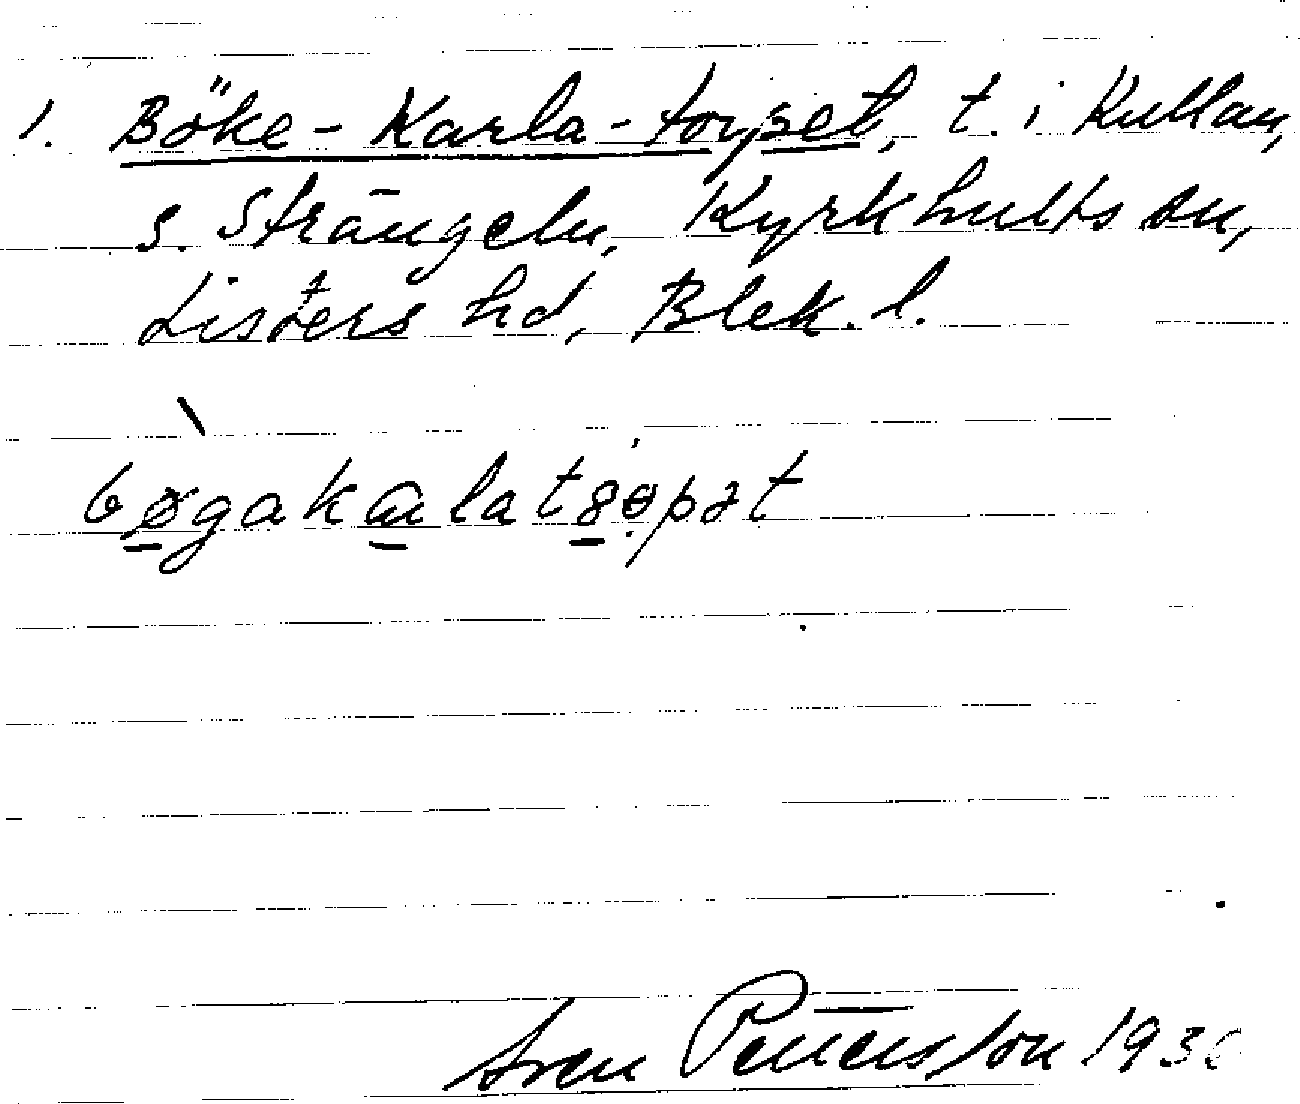 1. Böke-Karla-torpet, t. i Kullan,
s. Strängeln, Kyrkhults sn,
Listers hd, Blek. l.
bøgakɑlatsøpət
Sven Pettersson 193